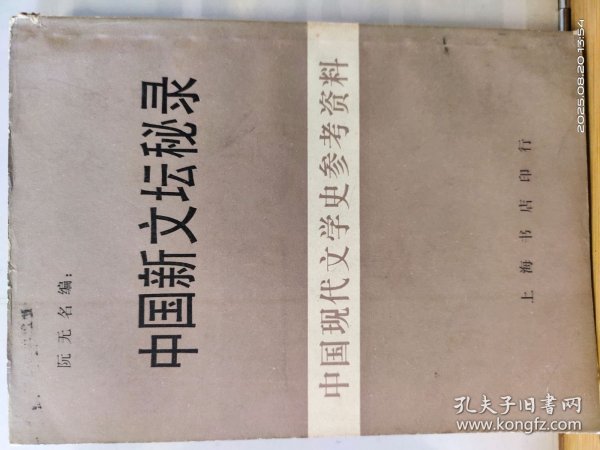 阮无名编：
中国新文坛秘录
中国现代文学史参考资料
上海书店印行
2025.08.20 13:54
孔夫子旧书网
www.kongfz.com